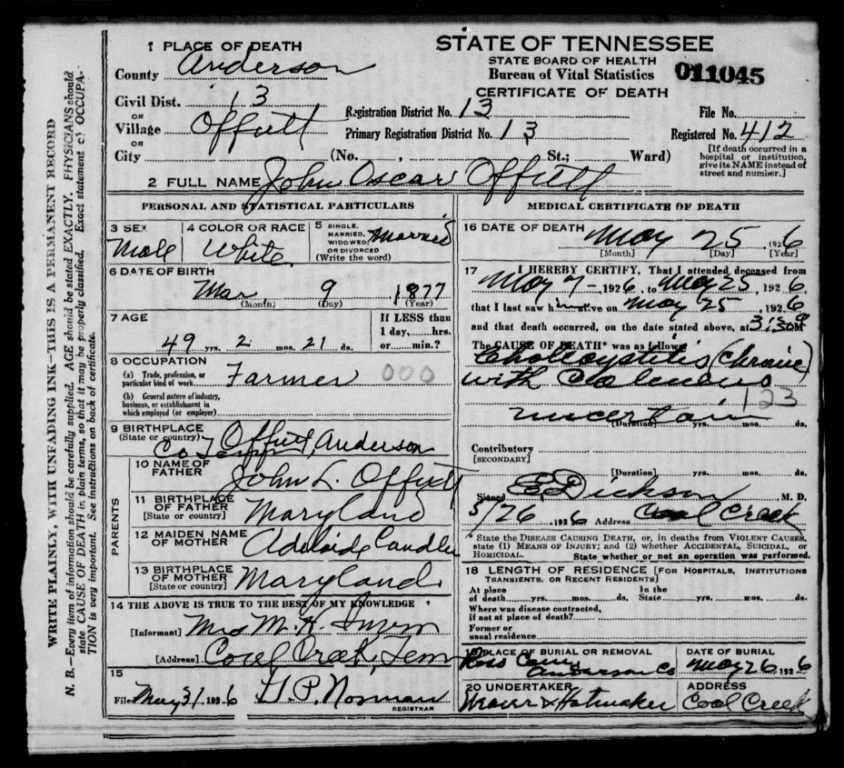 WRITE PLAINLY, WITH UNFADING INK—THIS IS A PERMANENT RECORD
N. B.—Every item of information should be carefully supplied. AGE should be stated EXACTLY. PHYSICIANS should
state CAUSE OF DEATH in plain terms, so that it may be properly classified. Exact statement of OCCUPA-
TION is very important. See instructions on back of certificate.
1 PLACE OF DEATH
County Anderson
Civil Dist. 13
OR
Village Offutt
OR
City (No. , St.; Ward)
STATE OF TENNESSEE
STATE BOARD OF HEALTH
Bureau of Vital Statistics
CERTIFICATE OF DEATH
011045
Registration District No. 13
File No.
Primary Registration District No. 13
Registered No. 412
[If death occurred in a
hospital or institution,
give its NAME instead of
street and number.]
2 FULL NAME John Oscar Offutt
PERSONAL AND STATISTICAL PARTICULARS
3 SEX
Male
4 COLOR OR RACE
White
5 SINGLE,
MARRIED,
WIDOWED,
OR DIVORCED
(Write the word)
Married
6 DATE OF BIRTH
Mar 9 1877
(Month) (Day) (Year)
7 AGE
49 yrs. 2 mos. 21 ds.
If LESS than
1 day, hrs.
or min.?
8 OCCUPATION
(a) Trade, profession, or
particular kind of work Farmer 000
(b) General nature of industry,
business, or establishment in
which employed (or employer)
9 BIRTHPLACE
(State or country) Offutt, Anderson
Co
PARENTS
10 NAME OF
FATHER John L. Offutt
11 BIRTHPLACE
OF FATHER
[State or country] Maryland
12 MAIDEN NAME
OF MOTHER Adelaide Candler
13 BIRTHPLACE
OF MOTHER
[State or country] Maryland
14 THE ABOVE IS TRUE TO THE BEST OF MY KNOWLEDGE
[Informant] Mrs M. K.
[Address] Coal Creek, Tenn
15
Filed May 31 1926 H. P. Norman
REGISTRAR
MEDICAL CERTIFICATE OF DEATH
16 DATE OF DEATH
May 25, 1926
[Month] [Day] [Year]
17 I HEREBY CERTIFY, That I attended deceased from
May 7 - 1926, to May 25, 1926
that I last saw him alive on May 25, 1926
and that death occurred, on the date stated above, at 3:30 M
The CAUSE OF DEATH* was as follows:
Cholicystitis (Chronic)
with
123
uncertain
(Duration) yrs. mos. ds.
Contributory
[SECONDARY]
(Duration) yrs. mos. ds.
Signed Dickson M. D.
5/26 1926 Address Coal Creek
*State the DISEASE CAUSING DEATH, or, in deaths from VIOLENT CAUSES,
state (1) MEANS OF INJURY; and (2) whether ACCIDENTAL, SUICIDAL, or
HOMICIDAL. State whether or not an operation was performed.
18 LENGTH OF RESIDENCE [FOR HOSPITALS, INSTITUTIONS
TRANSIENTS, OR RECENT RESIDENTS]
At place
of death yrs. mos. ds.
In the
State yrs. mos. ds.
Where was disease contracted,
if not at place of death?
Former or
usual residence
19 PLACE OF BURIAL OR REMOVAL
Ross Cem
Anderson Co
DATE OF BURIAL
May 26 1926
20 UNDERTAKER
Weaver & Hatmaker
ADDRESS
Coal Creek